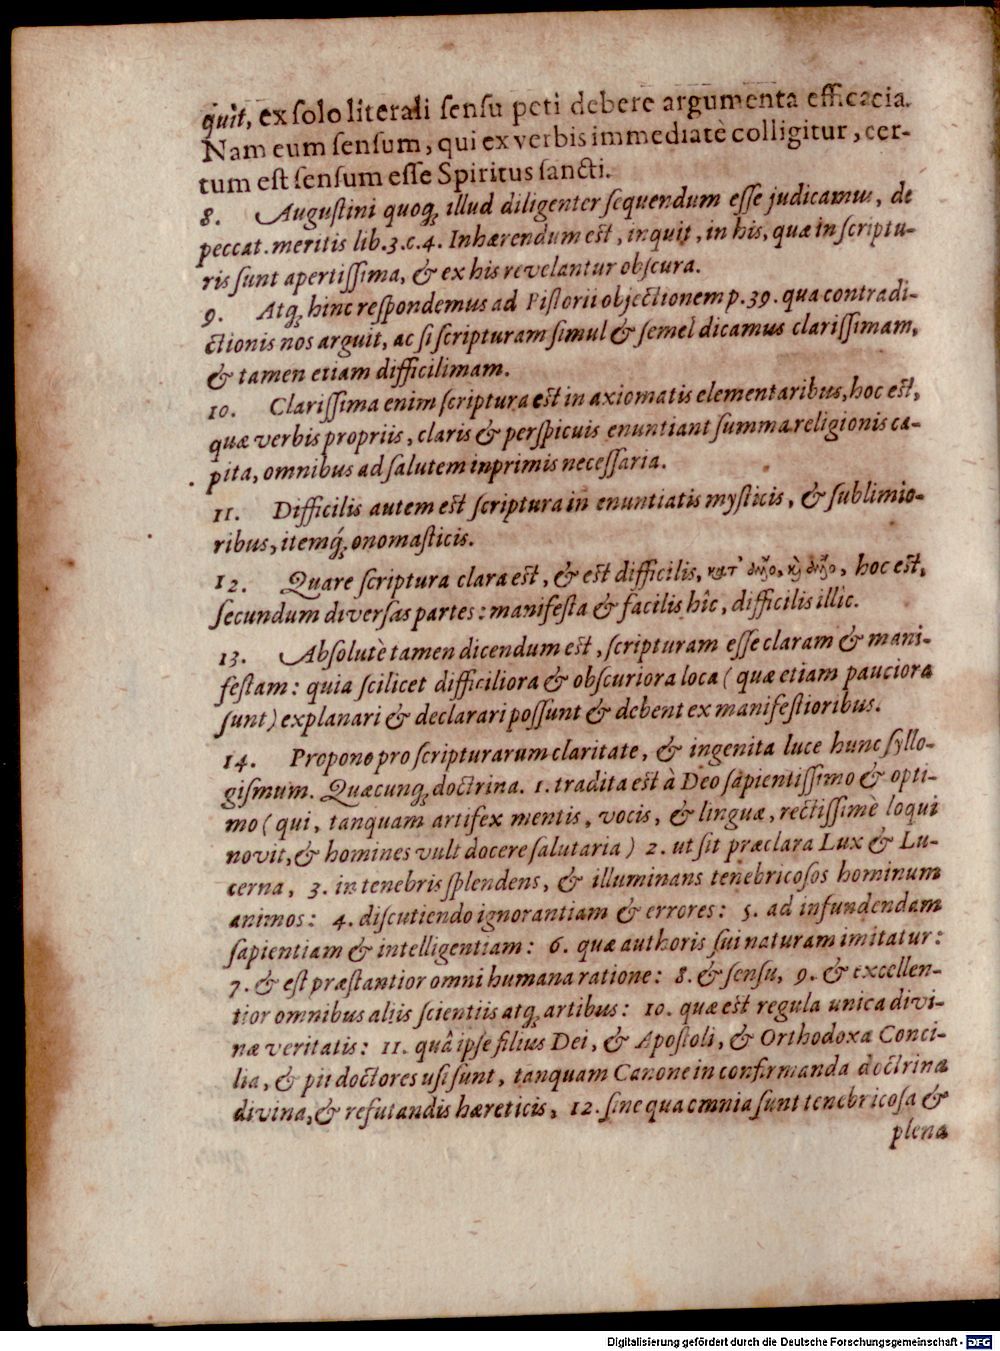 quit, ex solo literali sensu peti debere argumenta efficacia.
Nam eum sensum, qui ex verbis immediatè colligitur, cer-
tum est sensum esse Spiritus sancti.
8. Augustini quoq; illud diligenter sequendum esse judicamus, de
peccat. meritis lib. 3. c. 4. Inhærendum est, inquit, in his, quæ in scriptu-
ris sunt apertissima, & ex his revelantur obscura.
9. Atq; hinc respondemus ad Pistorii objectionem p. 39. qua contradi-
ctionis nos arguit, ac si scripturam simul & semel dicamus clarissimam,
& tamen etiam difficilimam.
10. Clarissima enim scriptura est in axiomatis elementaribus, hoc est,
quæ verbis propriis, claris & perspicuis enuntiant summa religionis ca-
pita, omnibus ad salutem inprimis necessaria.
11. Difficilis autem est scriptura in enuntiatis mysticis, & sublimio-
ribus, itemq́; onomasticis.
12. Quare scriptura clara est, & est difficilis, κατ' ἄλλο, καὶ ἄλλο, hoc est,
secundum diversas partes: manifesta & facilis hîc, difficilis illîc.
13. Absolutè tamen dicendum est, scripturam esse claram & mani-
festam: quia scilicet difficiliora & obscuriora loca (quæ etiam pauciora
sunt) explanari & declarari possunt & debent ex manifestioribus.
14. Propono pro scripturarum claritate, & ingenita luce hunc syllo-
gismum. Quæcunq; doctrina. 1. tradita est à Deo sapientissimo & opti-
mo (qui, tanquam artifex mentis, vocis, & linguæ, rectissimè loqui
novit, & homines vult docere salutaria) 2. ut sit præclara Lux & Lu-
cerna, 3. in tenebris splendens, & illuminans tenebricosos hominum
animos: 4. discutiendo ignorantiam & errores: 5. ad infundendam
sapientiam & intelligentiam: 6. quæ authoris sui naturam imitatur:
7. & est præstantior omni humana ratione: 8. & sensu, 9. & excellen-
tior omnibus aliis scientiis atq; artibus: 10. quæ est regula unica divi-
næ veritatis: 11. quâ ipse filius Dei, & Apostoli, & Orthodoxa Conci-
lia, & pii doctores usi sunt, tanquam Canone in confirmanda doctrina
divina, & refutandis hæreticis, 12. sine qua omnia sunt tenebricosa &
plena
Digitalisierung gefördert durch die Deutsche Forschungsgemeinschaft - DFG